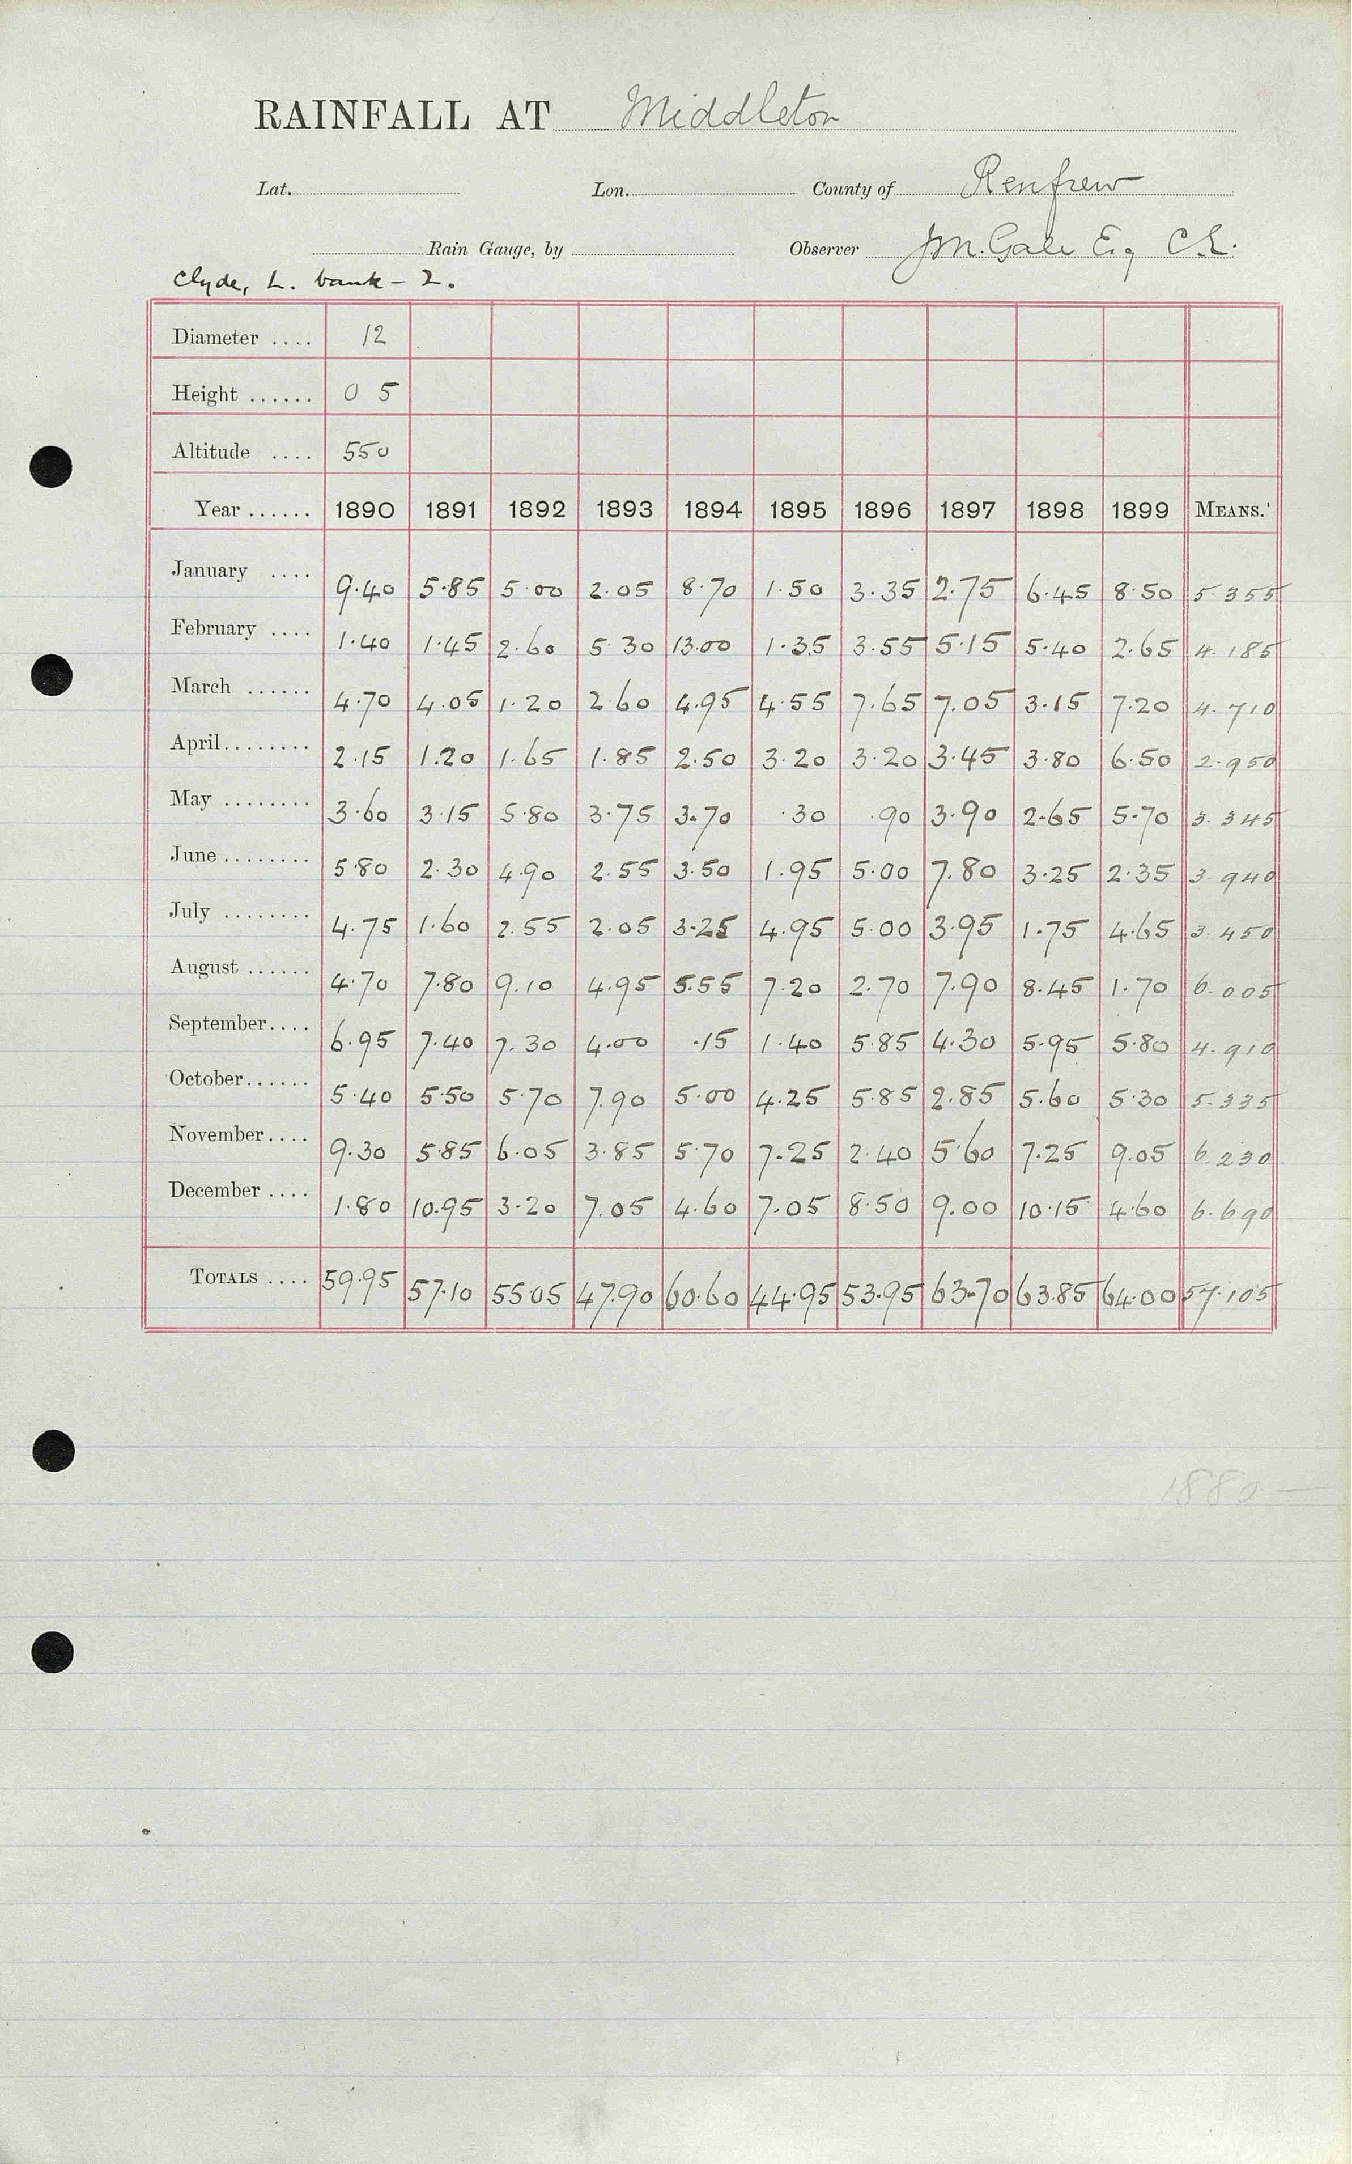 RAINFALL AT Middleton
Lat. Lon. County of Renfrew
Rain Gauge, by Observer J.M. Gale Esq C.E.
Clyde, L. bank - 2.
Diameter .... 12
Height ...... 0 5
Altitude .... 550
Year ...... 1890 1891 1892 1893 1894 1895 1896 1897 1898 1899 MEANS.
January .... 9.40 5.85 5.00 2.05 8.70 1.50 3.35 2.75 6.45 8.50 5.355
February .... 1.40 1.45 2.60 5.30 13.00 1.35 3.55 5.15 5.40 2.65 4.185
March ...... 4.70 4.05 1.20 2.60 4.95 4.55 7.65 7.05 3.15 7.20 4.710
April........ 2.15 1.20 1.65 1.85 2.50 3.20 3.20 3.45 3.80 6.50 2.950
May ........ 3.60 3.15 5.80 3.75 3.70 .30 .90 3.90 2.65 5.70 3.345
June ........ 5.80 2.30 4.90 2.55 3.50 1.95 5.00 7.80 3.25 2.35 3.940
July ........ 4.75 1.60 2.55 2.05 3.25 4.95 5.00 3.95 1.75 4.65 3.450
August ...... 4.70 7.80 9.10 4.95 5.55 7.20 2.70 7.90 8.45 1.70 6.005
September.... 6.95 7.40 7.30 4.00 .15 1.40 5.85 4.30 5.95 5.80 4.910
October...... 5.40 5.50 5.70 7.90 5.00 4.25 5.85 2.85 5.60 5.30 5.335
November.... 9.30 5.85 6.05 3.85 5.70 7.25 2.40 5.60 7.25 9.05 6.230
December .... 1.80 10.95 3.20 7.05 4.60 7.05 8.50 9.00 10.15 4.60 6.690
TOTALS .... 59.95 57.10 55.05 47.90 60.60 44.95 53.95 63.70 63.85 64.00 57.105
1880 —